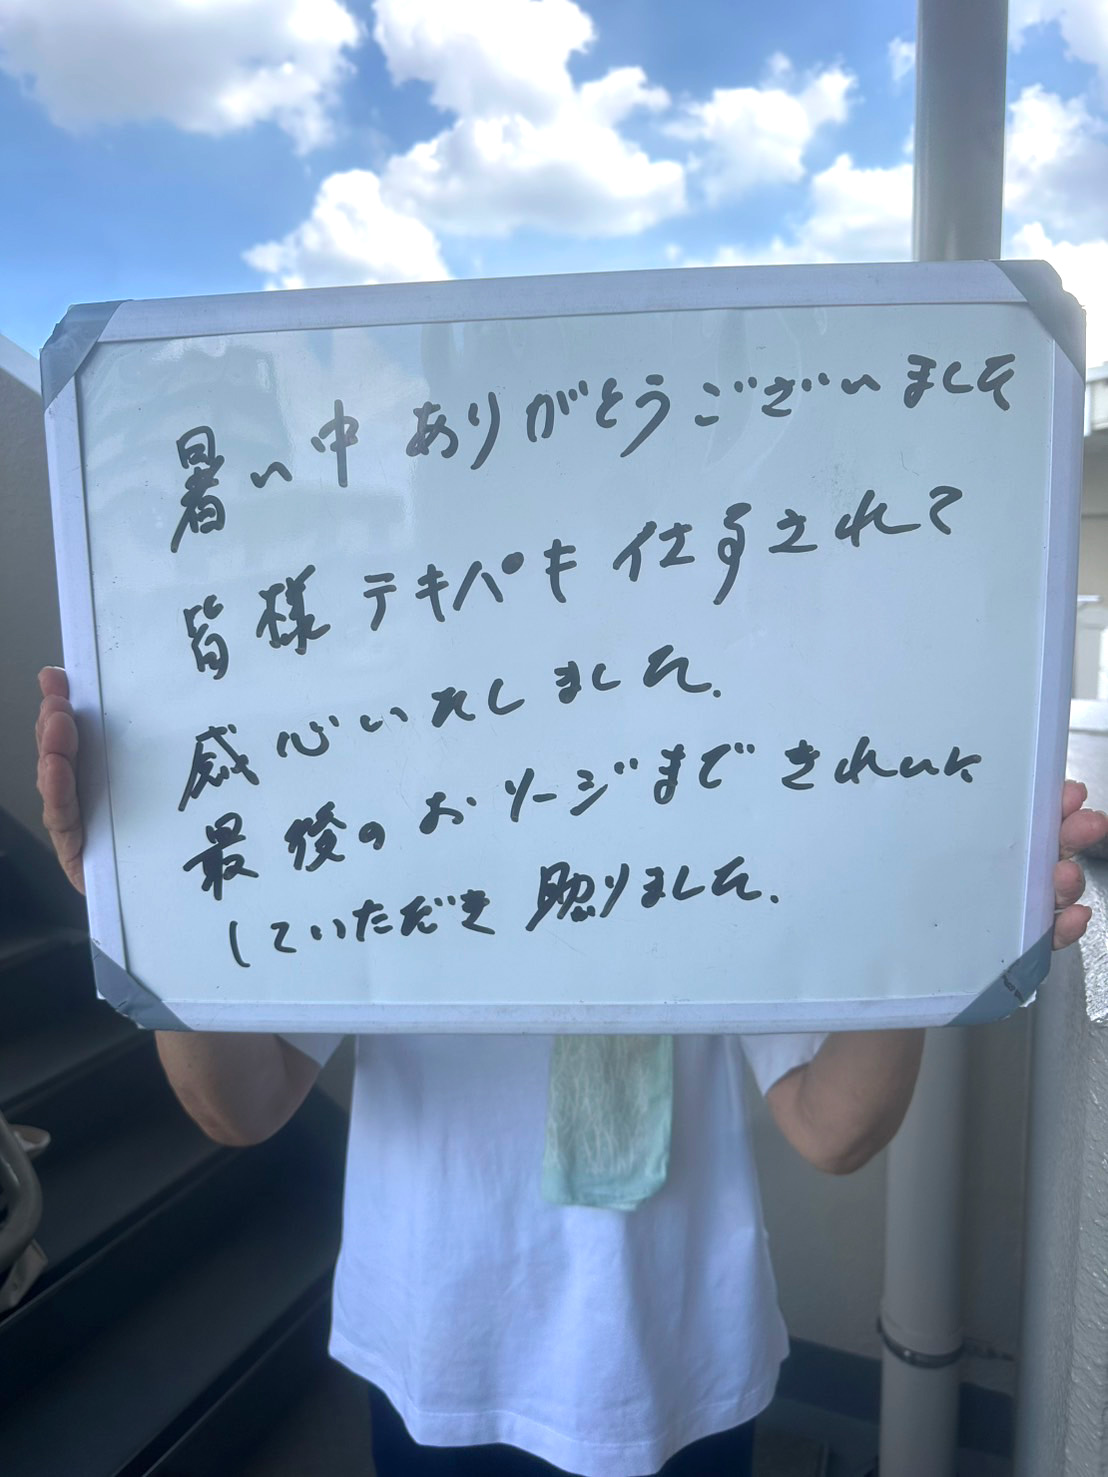 暑い中ありがとうございました
皆様テキパキ仕事されて
感心いたしました.
最後のおソージまできれいに
していただき助かりました.